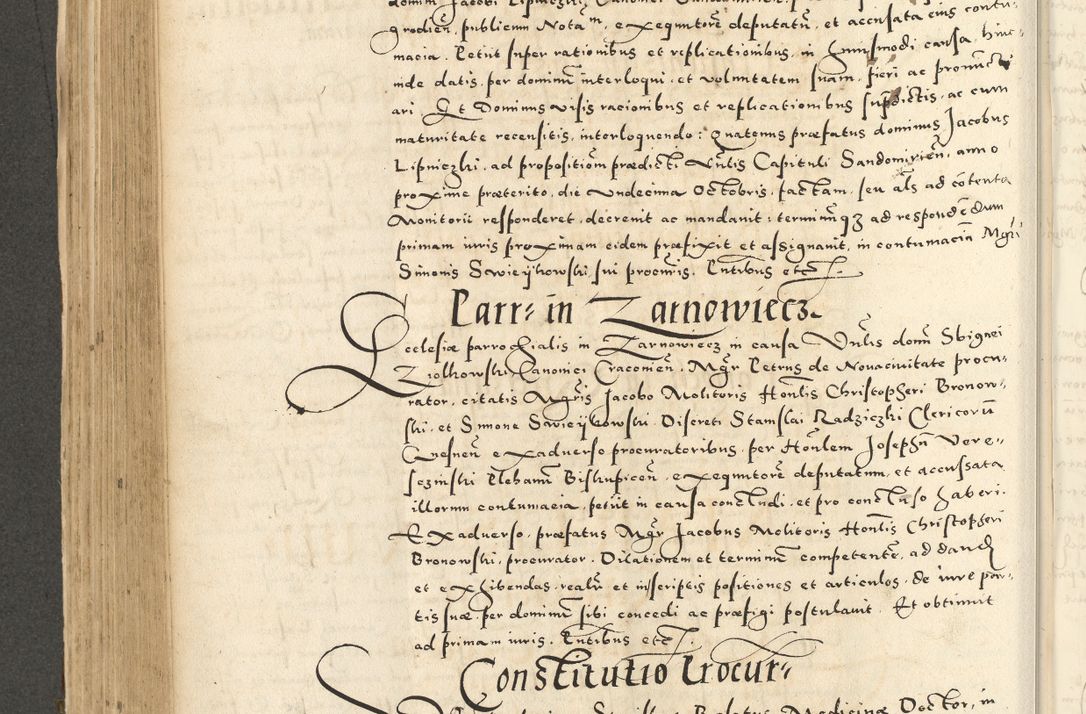 domini Jacobi Lipniczki, Canonici Sandomirien̄, p
grodien̄, publicum Notam, exequutorē deputatū, et accusata eius contu-
macia. Petiit super rationibus et replicationibus, in huiusmodi causa, hinc-
inde datis, per dominū interloqui, et voluntatem suam, fieri ac pronuncti
ari. Et Dominus visis racionibus et replicationibus supradictis, ac cum
maturitate recensitis, interloquendo: quatenus præfatus dominus Jacobus
Lipniczki, ad propositiōm prædicti Vn̄lis Capituli Sandomirien̄, anno
proxime præterito, die undecima Octobris, factam, seu al̄s ad cōtenta
Monitorii responderet, decrevit ac mandavit: terminūqȝ ad respondēdum
primam iuris proximam eidem præfixit et assignavit, in contumaciā Mgr̄i
Simonis Swieijkowski, sui procur̄is. Pn̄tibus etc.
Parr: in Zarnowiecz.
Ecclesiæ parrochialis in Zarnowiecz in causa Vn̄lis domī Sbignei
Ziolkowski Canonici Cracovien̄, Mgr̄ Petrus de Novacivitate procu-
rator, citatis Mgr̄is Jacobo Molitoris Hon̄lis Christopheri Bronow-
ski, et Simone Swieijkowski Discreti Stanislai Radziczki Clericorū
Gnesnen̄ exadverso procuratoribus, per Hon̄lem Josephū Vere-
sczinski Plebanū Biskupicen̄, exequutorē deputatum, et accussata
illorum contumacia, petiit in causa concludi, et pro concluso haberi.
Exadverso, præfatus Mgr̄ Jacobus Molitoris Hon̄lis Christopheri
Bronowski, procurator, Dilationem et terminū competentē, ad dand
et exhibendas, realr̄ et in scriptis positiones et articulos, de iure par-
tis suæ, per dominū sibi concedi ac præfigi postulavit. Et obtinuit
ad primam iuris. Pn̄tibus etc.
Constitutio Procur:
Medicinæ Doctor, in